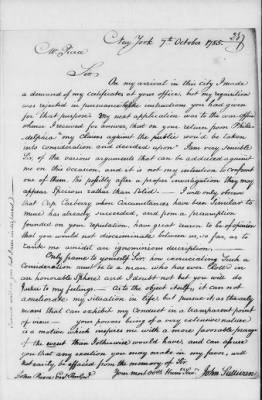 237
New York 7th October 1785.
Mr. Pierce
Sir
On my arrival in this city I made
a demand of my certificates at your office, but my requisition
was rejected in pursuance of the instructions you had given
for that purpose. My next application was to the war office
where I received for answer, that on your return from Phila-
delphia "my claims against the public would be taken
into consideration and decided upon." I am very sensible
Sir, of the various arguments that can be adduced against
me on this occasion, and it is not my intention to confront
one of them. tho possibly after a proper investigation they may
appear Specious rather than Solid. I will only observe
that Cap. Carbery whose Circumstances have been Similar to
mine has already succeeded, and from a presumption
founded on your reputation, have great reason to be of opinion
that you would not discriminate between us, so far, as to
rank me amidst an ignominious description.
Only frame to yourself Sir, how excruciating Such a
Consideration must be to a man who has ever stood in
an honorable Sphere and I doubt not but you will do
justice to my feelings. As to the object itself, it can not
ameliorate my situation in life, but pursue it as the only
means that can exhibit my Conduct in a transparent point
of view. your powers being of a very extensive nature
is a motive which inspires me with a more favorable presage
of the event than I otherwise would have, and can assure
you that any exertion you may make in my favor, will
not easily be effaced from the memory of Sir
Your most Obt. Hum Servt.
John Sullivan
John Pierce Esqr.